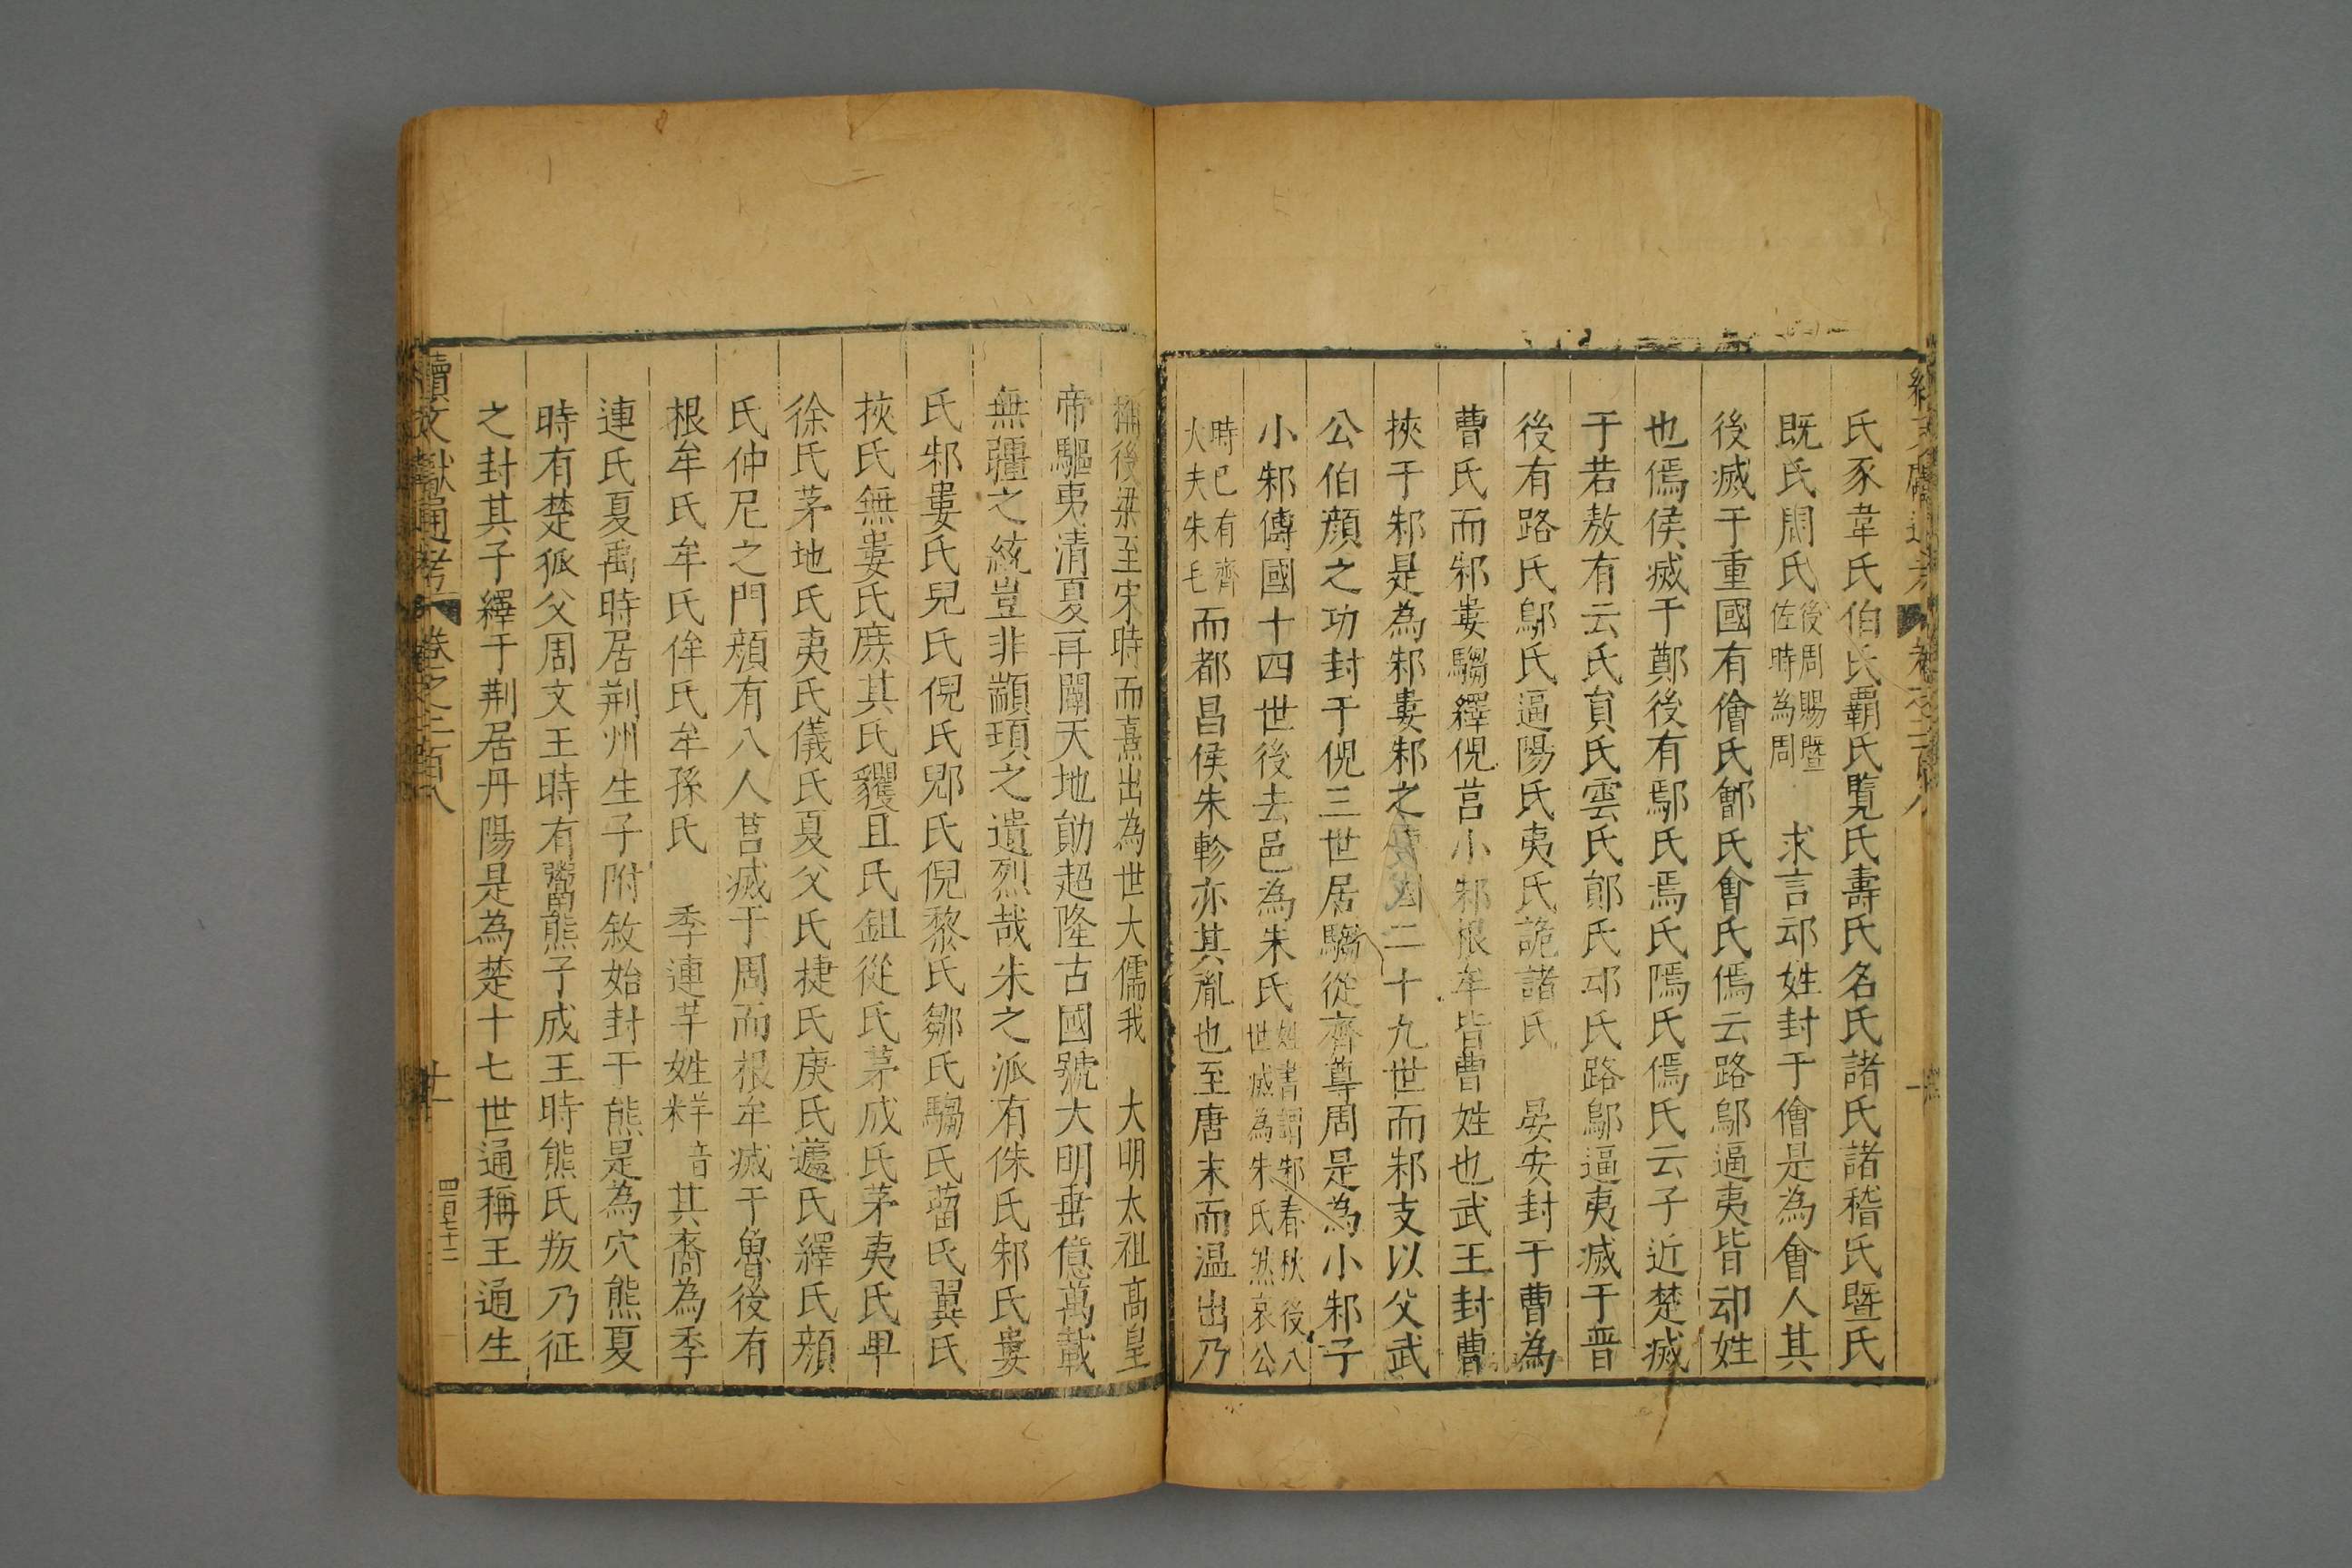 氏豕韋氏伯氏霸氏覽氏壽氏名氏諸氏諸稽氏暨氏
既氏閻氏後周賜暨佐時為周 求言䢵姓封于鄶是為會人其
後滅于重國有鄶氏鄫氏會氏傿云路鄔逼夷皆䢵姓
也傿侯滅于鄭後有鄢氏焉氏隖氏傿氏云子近楚滅
于若敖有云氏負氏雲氏鄖氏䢵氏路鄔逼夷滅于晉
後有路氏鄔氏逼陽氏夷氏詭諸氏 晏安封于曹為
曹氏而邾婁騶繹倪莒小邾根牟皆曹姓也武王封曹
挾于邾是為邾婁邾之 二十九世而邾支以父武
公伯顏之功封于倪三世居騶從齊尊周是為小邾子
小邾傳國十四世後去邑為朱氏姓書謂邾春秋後八世滅為朱氏然哀公
時已有齊大夫朱毛而都昌侯朱軫亦其胤也至唐末而温出乃
稱後梁至宋時而熹出為世大儒我 大明太祖高皇
帝驅夷清夏再闢天地勛超隆古國號大明垂億萬載
無疆之統豈非顓頊之遺烈哉朱之派有侏氏邾氏婁
氏邾婁氏兒氏倪氏郳氏倪黎氏鄒氏騶氏菑氏翼氏
挾氏無婁氏庶其氏貜且氏鉏從氏茅成氏茅夷氏卑
徐氏茅地氏夷氏儀氏夏父氏捷氏庚氏蘧氏繹氏顏
氏仲尼之門顏有八人莒滅于周而根牟滅于魯後有
根牟氏牟氏侔氏牟孫氏 季連芊姓粖音其裔為季
連氏夏禹時居荆州生子附敘始封于熊是為穴熊夏
時有楚狐父周文王時有鬻熊子成王時熊氏叛乃征
之封其子繹于荆居丹陽是為楚十七世通稱王通生
續文獻通考 卷之二百八 廿一 四百七十二